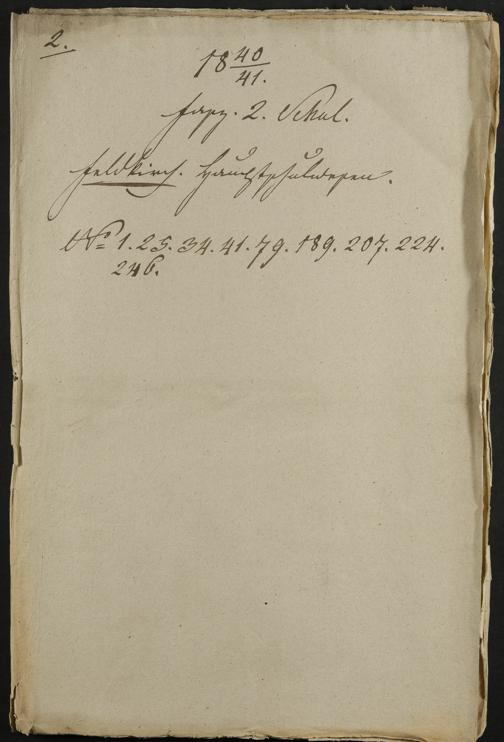 2.
18 40/41.
Fasz. 2. Schul.
Feldkirch. Hauptschulwesen.
No 1. 25. 34. 41. 79. 189. 207. 224.
246.